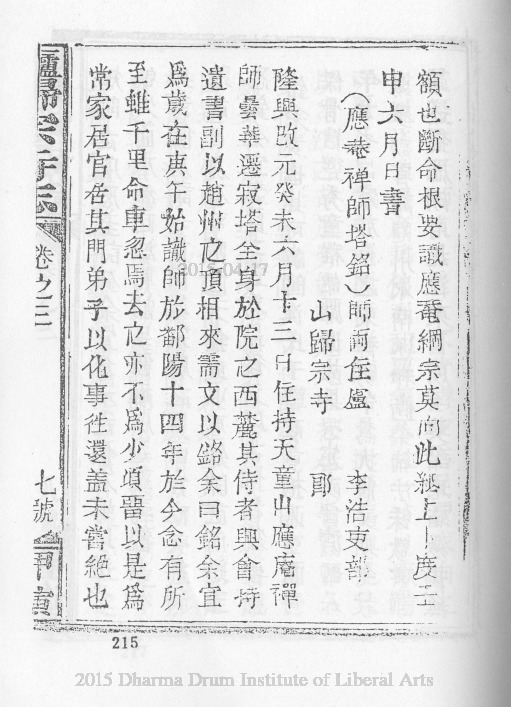 額也斷命根要識應菴綱宗莫向此紙上卜度壬
申六月日書
（應菴禪師塔銘）師兩住廬 李浩吏部
山歸宗寺 郎
隆興改元癸未六月十三日住持天童山應庵禪
師曇華遷寂塔全身於院之西麓其侍者與會持
遺書副以趙州之頂相來需文以銘余曰銘余宜
爲歲在庚午始識師於鄱陽十四年於今念有所
至雖千里命車忽焉去之亦不爲少頃留以是爲
常家居官舍其門弟子以化事徃還盖未嘗絶也
歸宗寺志 卷之三 七號 甲寅
215
2015 Dharma Drum Institute of Liberal Arts